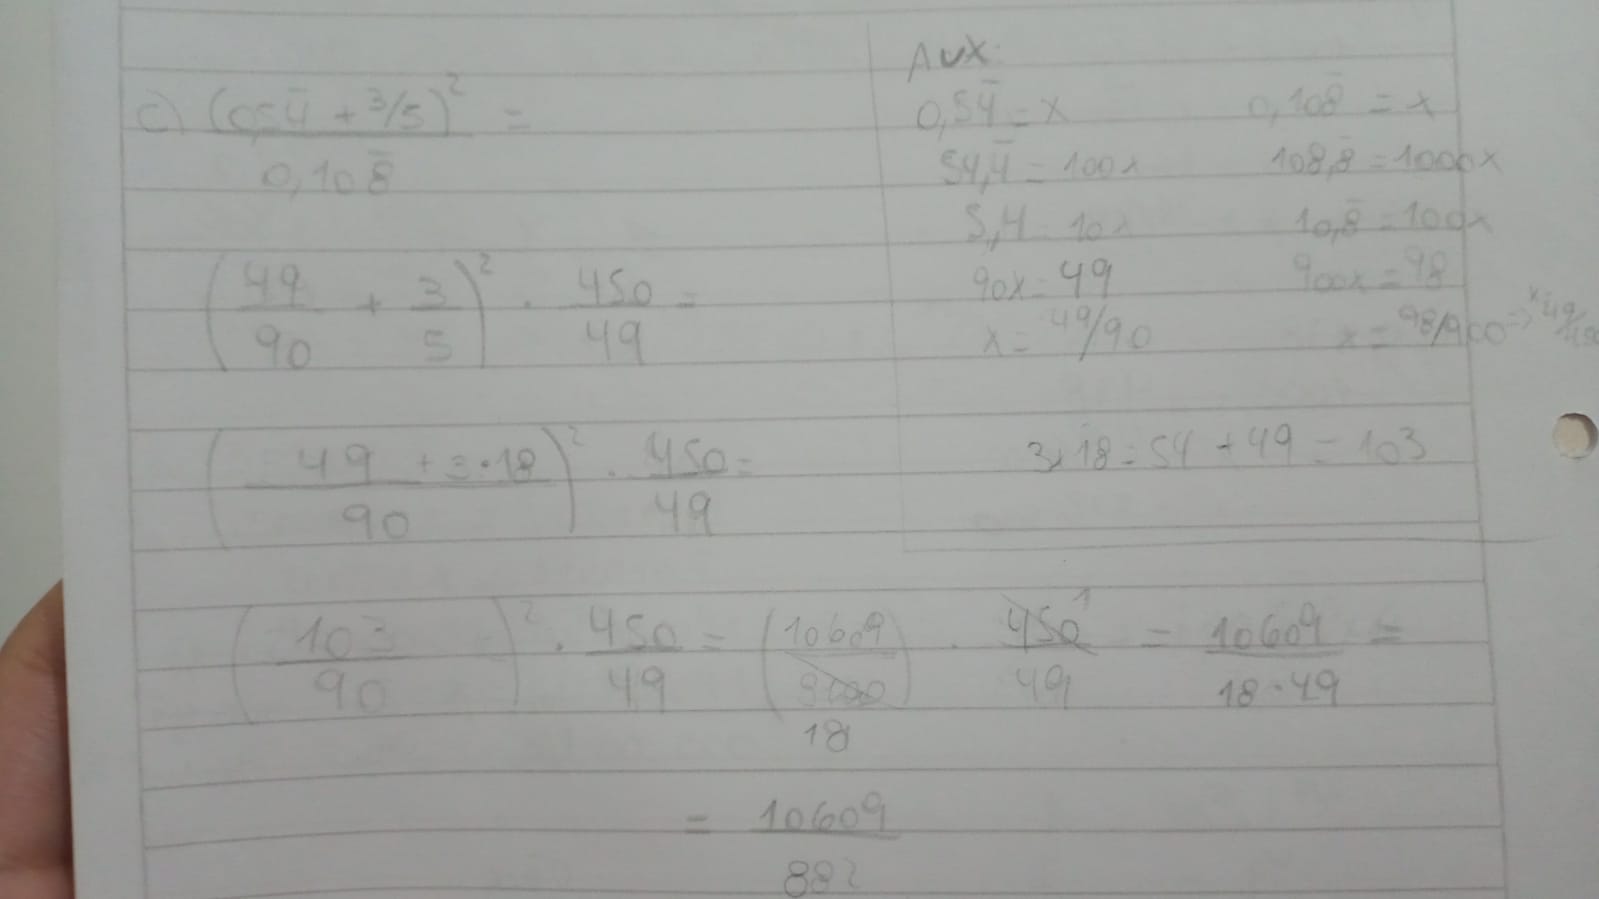 c) (0,54̄ + 3/5)² / 0,108̄ =
(49/90 + 3/5)² · 450/49 =
((49 + 3·18)/90)² · 450/49 =
(103/90)² · 450/49 = (10609/8100) · 450/49 = 10609/(18·49) =
18 1
= 10609/882
AUX:
0,54̄ = x
54,4̄ = 100x
5,4 = 10x
90x = 49
x = 49/90
0,108̄ = x
108,8̄ = 1000x
10,8̄ = 100x
900x = 98
x = 98/900 => x = 49/450
3x18 = 54 + 49 = 103